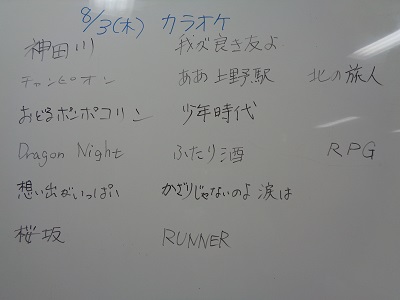 8/3(木) カラオケ
神田川 我が良き友よ
チャンピオン ああ上野駅 北の旅人
おどるポンポコリン 少年時代
Dragon Night ふたり酒 RPG
想い出がいっぱい かざりじゃないのよ涙は
桜坂 RUNNER